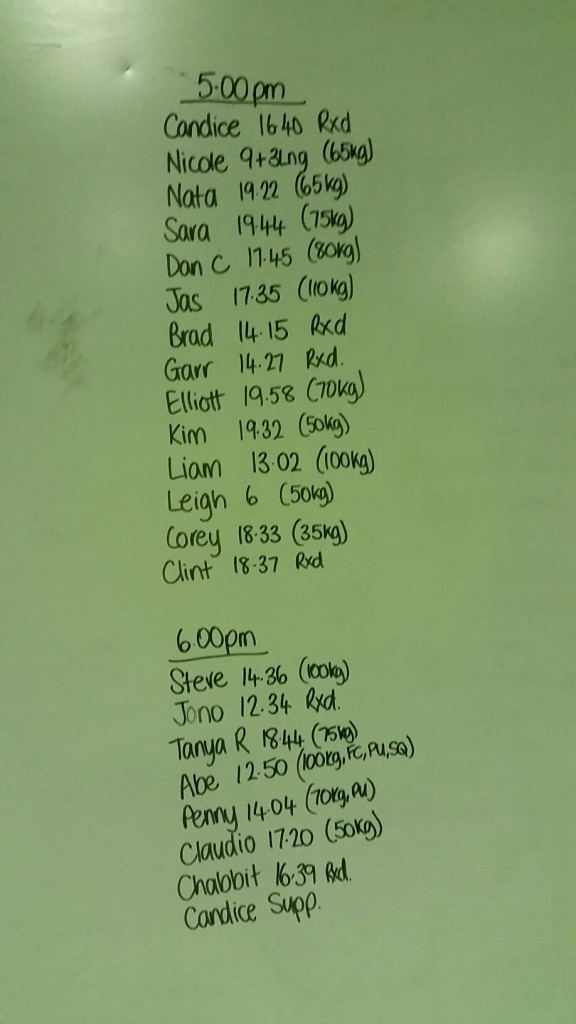 5.00pm
Candice 16.40 Rxd
Nicole 9+3Lng (65kg)
Nata 19.22 (65kg)
Sara 19.44 (75kg)
Dan C 17.45 (80kg)
Jas 17.35 (110kg)
Brad 14.15 Rxd
Garr 14.27 Rxd.
Elliott 19.58 (70kg)
Kim 19.32 (50kg)
Liam 13.02 (100kg)
Leigh 6 (50kg)
Corey 18.33 (35kg)
Clint 18.37 Rxd
6.00pm
Steve 14.36 (100kg)
Jono 12.34 Rxd.
Tanya R 18.44 (75kg)
Abe 12.50 (100kg, FC, PU, SQ)
Penny 14.04 (70kg, PU)
Claudio 17.20 (50kg)
Chabbit 16.39 Rxd.
Candice Supp.